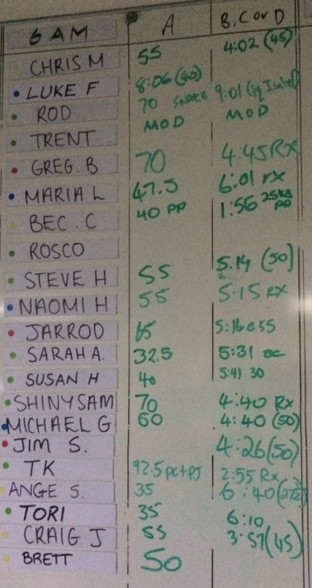 6 AM A B, C or D
CHRIS M 55 4:02 (45)
LUKE F 8:06 (40)
ROD 70 9:01
TRENT MOD MOD
GREG. B 70 4:45 Rx
MARIA L 47.5 6:01 rx
BEC. C 40 PP 1:56 25kg PP
ROSCO
STEVE H 55 5:14 (50)
NAOMI H 55 5:15 RX
JARROD 65 5:16
SARAH A. 32.5 5:31
SUSAN H 40 5:41 30
SHINY SAM 70 4:40 Rx
MICHAEL G 60 4:40 (50)
JIM S. 4:26 (50)
TK 92.5 pc+pj 2:55 Rx
ANGE S. 35 6:40
TORI 35 6:10
CRAIG J 55 3:57 (45)
BRETT 50